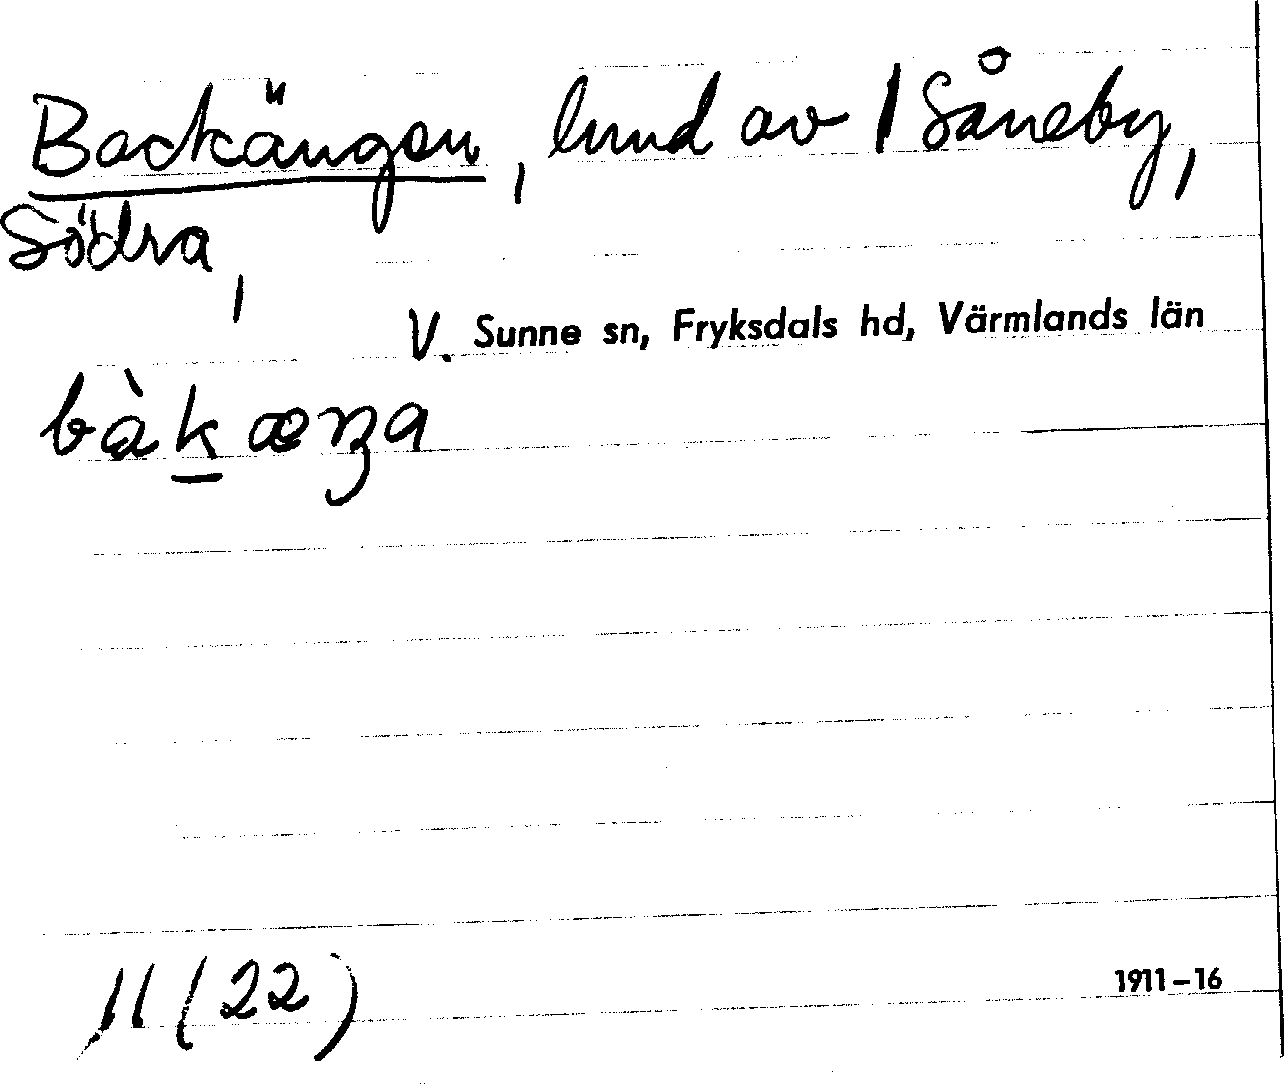 Backängen, lund av 1 Såneby,
Södra,
V. Sunne sn, Fryksdals hd, Värmlands län
bàk̲æŋa
11 (22)
1911-16